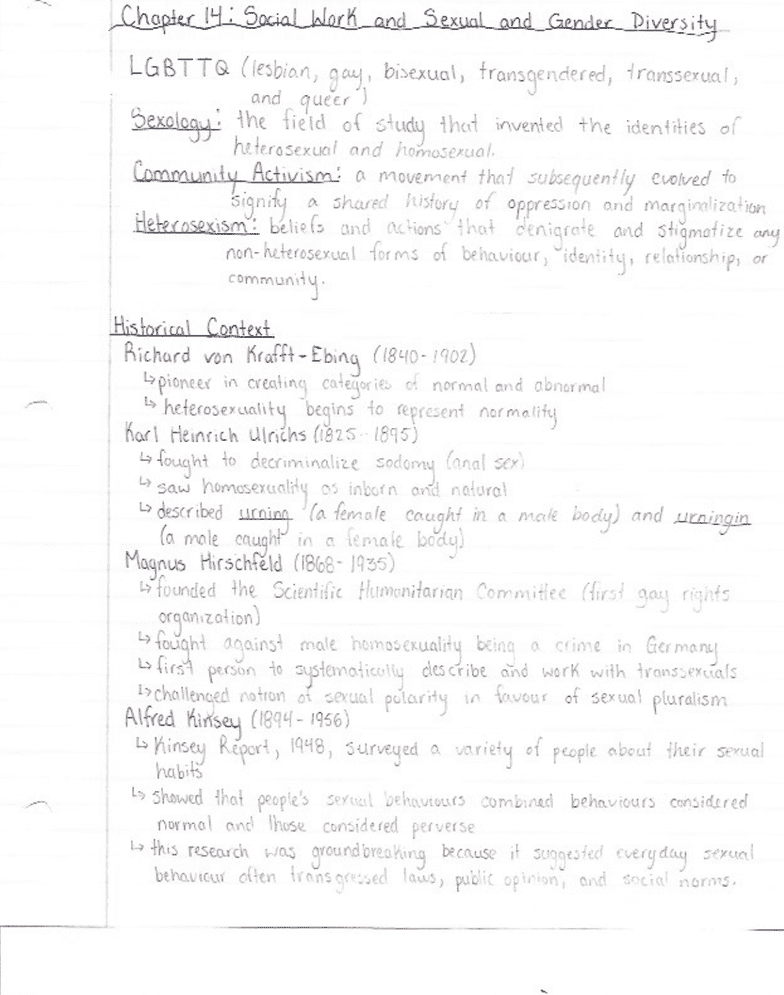 Chapter 14: Social Work and Sexual and Gender Diversity
LGBTTQ (lesbian, gay, bisexual, transgendered, transsexual,
and queer)
Sexology: the field of study that invented the identities of
heterosexual and homosexual.
Community Activism: a movement that subsequently evolved to
signify a shared history of oppression and marginalization
Heterosexism: beliefs and actions that denigrate and stigmatize any
non-heterosexual forms of behaviour, identity, relationship, or
community.
Historical Context
Richard von Krafft-Ebing (1840-1902)
↳ pioneer in creating categories of normal and abnormal
↳ heterosexuality begins to represent normality
Karl Heinrich Ulrichs (1825-1895)
↳ fought to decriminalize sodomy (anal sex)
↳ saw homosexuality as inborn and natural
↳ described urning (a female caught in a male body) and urningin
(a male caught in a female body)
Magnus Hirschfeld (1868-1935)
↳ founded the Scientific Humanitarian Committee (first gay rights
organization)
↳ fought against male homosexuality being a crime in Germany
↳ first person to systematically describe and work with transsexuals
↳ challenged notion of sexual polarity in favour of sexual pluralism
Alfred Kinsey (1894-1956)
↳ Kinsey Report, 1948, surveyed a variety of people about their sexual
habits
↳ showed that people's sexual behaviours combined behaviours considered
normal and those considered perverse
↳ this research was groundbreaking because it suggested everyday sexual
behaviour often transgressed laws, public opinion, and social norms.